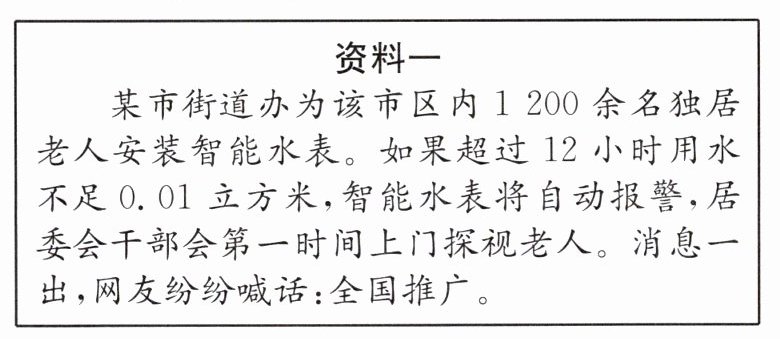 资料一
某市街道办为该市区内1 200余名独居
老人安装智能水表。如果超过12小时用水
不足0.01立方米,智能水表将自动报警,居
委会干部会第一时间上门探视老人。消息一
出,网友纷纷喊话:全国推广。